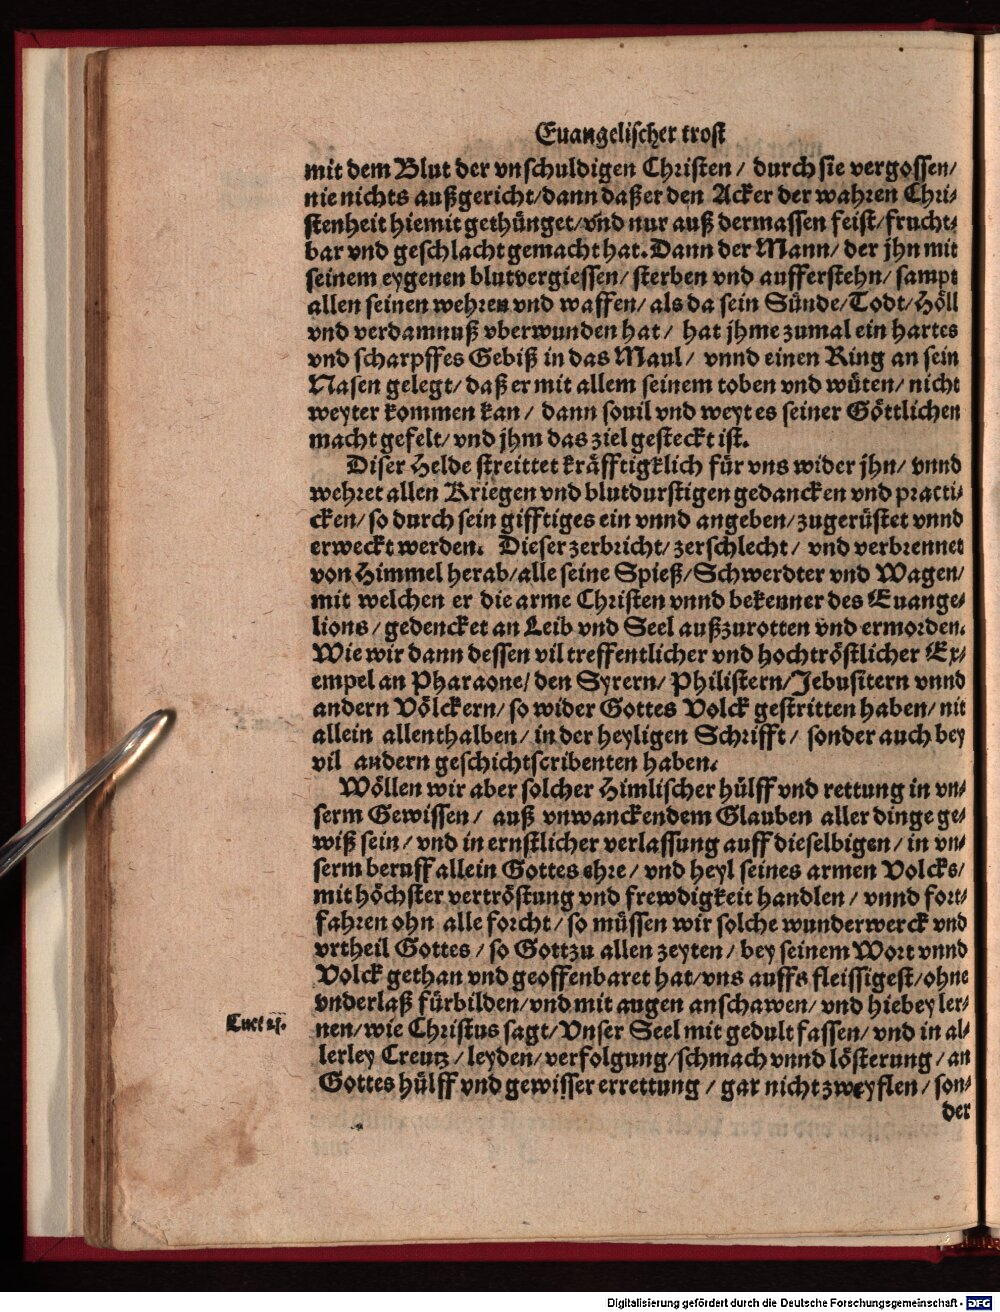 Euangelischer trost
mit dem Blut der vnschuldigen Christen / durch sie vergossen/
nie nichts außgericht/dann daß er den Acker der wahren Chri-
stenheit hiemit gethünget/vnd nur auß dermassen feist/frucht-
bar vnd geschlacht gemacht hat. Dann der Mann/ der jhn mit
seinem eygenen blutvergiessen/ sterben vnd aufferstehn/ sampt
allen seinen wehren vnd waffen/ als da sein Sünde/Todt/Höll
vnd verdamnuß vberwunden hat/ hat jhme zumal ein hartes
vnd scharpffes Gebiß in das Maul/ vnnd einen Ring an sein
Nasen gelegt/ daß er mit allem seinem toben vnd wüten/ nicht
weyter kommen kan/ dann souil vnd weyt es seiner Göttlichen
macht gefelt/ vnd jhm das ziel gesteckt ist.
Diser Helde streittet kräfftigklich für vns wider jhn/ vnnd
wehret allen Kriegen vnd blutdurstigen gedancken vnd practi-
cken/ so durch sein gifftiges ein vnnd angeben/ zugerüstet vnnd
erweckt werden. Dieser zerbricht/ zerschlecht/ vnd verbrennet
von Himmel herab/alle seine Spieß/Schwerdter vnd Wagen/
mit welchen er die arme Christen vnnd bekenner des Euange-
lions/ gedencket an Leib vnd Seel außzurotten vnd ermorden.
Wie wir dann dessen vil treffentlicher vnd hochtröstlicher Ex-
empel an Pharaone/ den Syrern/ Philistern/Jebusitern vnnd
andern Völckern/ so wider Gottes Volck gestritten haben/ nit
allein allenthalben/ in der heyligen Schrifft/ sonder auch bey
vil andern geschichtscribenten haben.
Wöllen wir aber solcher Himlischer hülff vnd rettung in vn-
serm Gewissen/ auß vnwanckendem Glauben aller dinge ge-
wiß sein/ vnd in ernstlicher verlassung auff dieselbigen/ in vn-
serm beruff allein Gottes ehre/ vnd heyl seines armen Volcks/
mit höchster vertröstung vnd frewdigkeit handlen/ vnnd fort-
fahren ohn alle forcht/ so müssen wir solche wunderwerck vnd
vrtheil Gottes/ so Gott zu allen zeyten/ bey seinem Wort vnnd
Volck gethan vnd geoffenbaret hat/vns auffs fleissigest/ohne
vnderlaß fürbilden/vnd mit augen anschawen/ vnd hiebey ler-
Luce 21.
nen/wie Christus sagt/Vnser Seel mit gedult fassen/ vnd in al-
lerley Creutz/ leyden/ verfolgung/schmach vnnd lösterung/ an
Gottes hülff vnd gewisser errettung/ gar nicht zweyflen/ son-
der
Digitalisierung gefördert durch die Deutsche Forschungsgemeinschaft - DFG